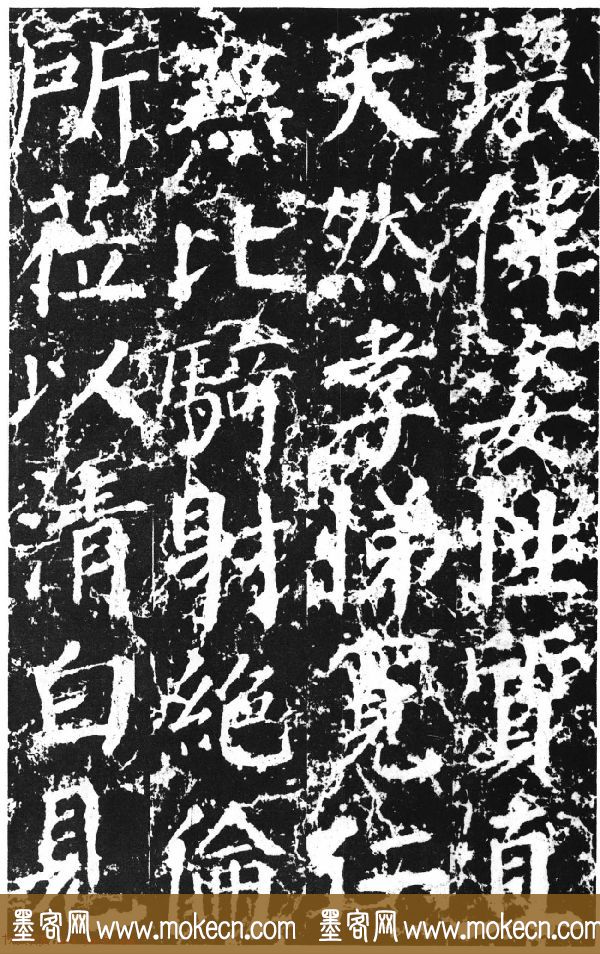 瓌偉姿性質直
天然孝悌寛仁
無比騎射絕倫
所莅以清白見
墨客网 www.mokecn.com 墨客网 www.mokecn.com